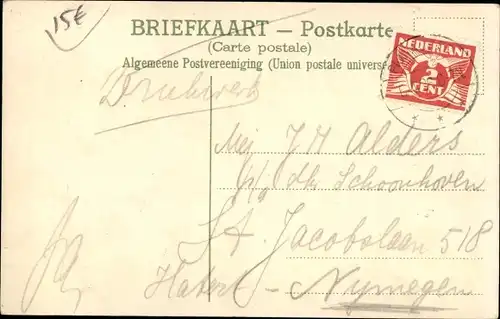 15€
BRIEFKAART – Postkarte
(Carte postale)
Algemeene Postvereeniging (Union postale universe
NEDERLAND
2
CENT
Drukwerk
Mej J H Alders
p/a dhr Schoonhoven
St. Jacobslaan 518
Hatert - Nymegen